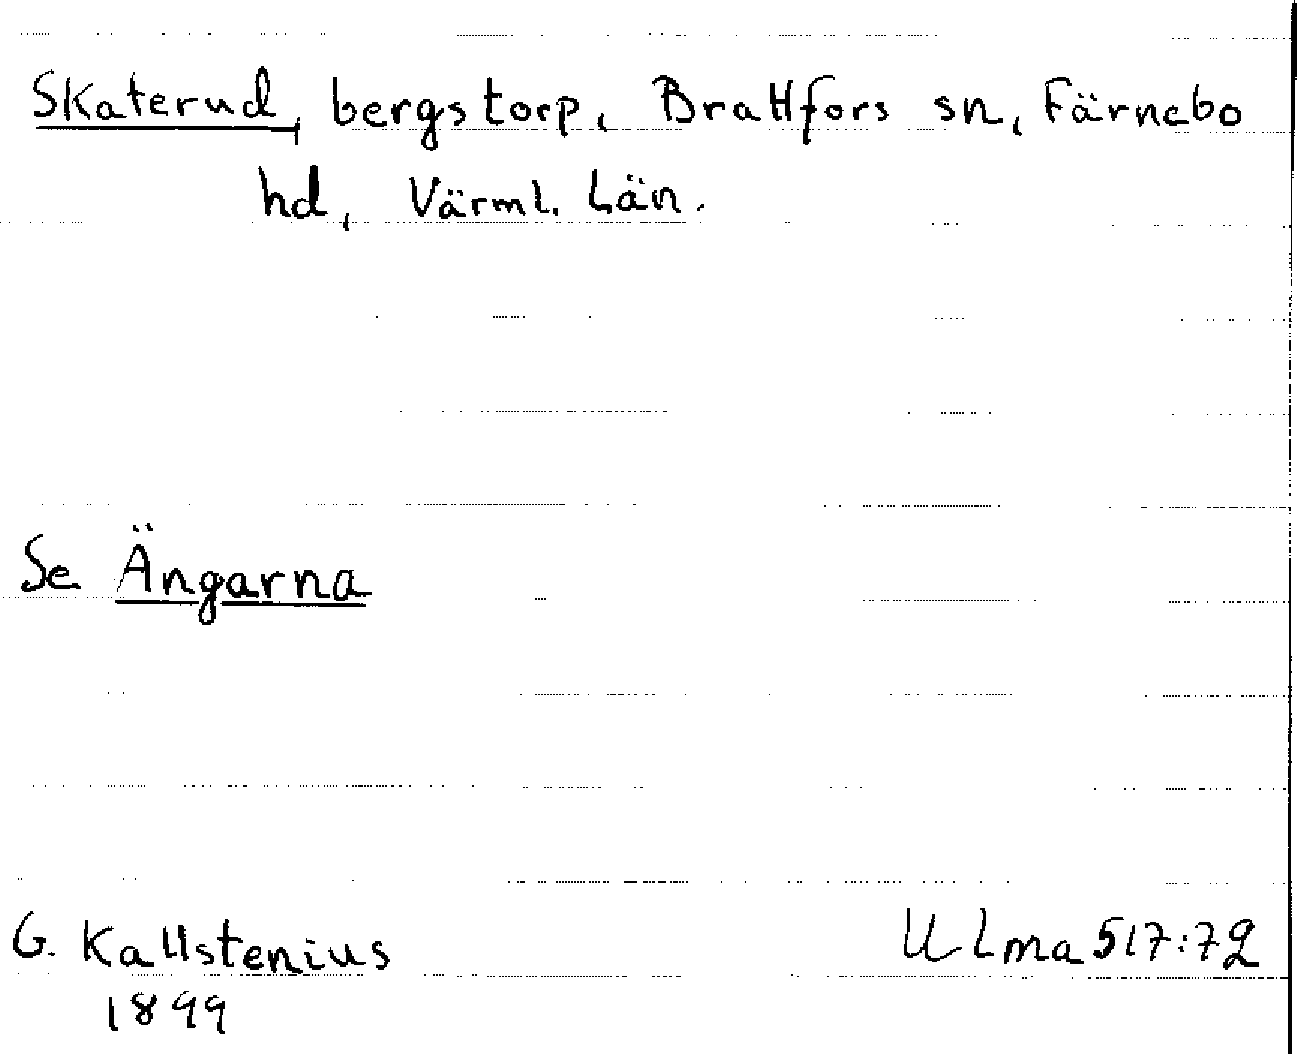 Skaterud, bergstorp, Brattfors sn, Färnebo
hd, Värml. Län.
Se Ängarna
G. Kallstenius
1899
ULma 517:72